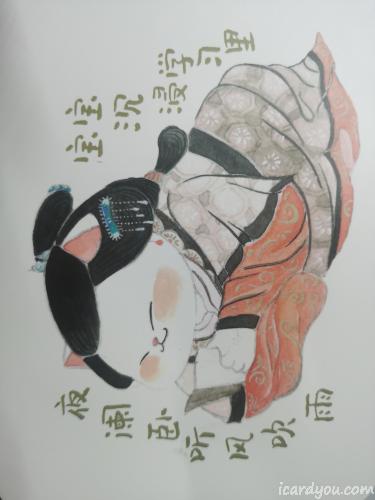 宝宝沉浸学习里
夜阑卧听风吹雨
icardyou.com